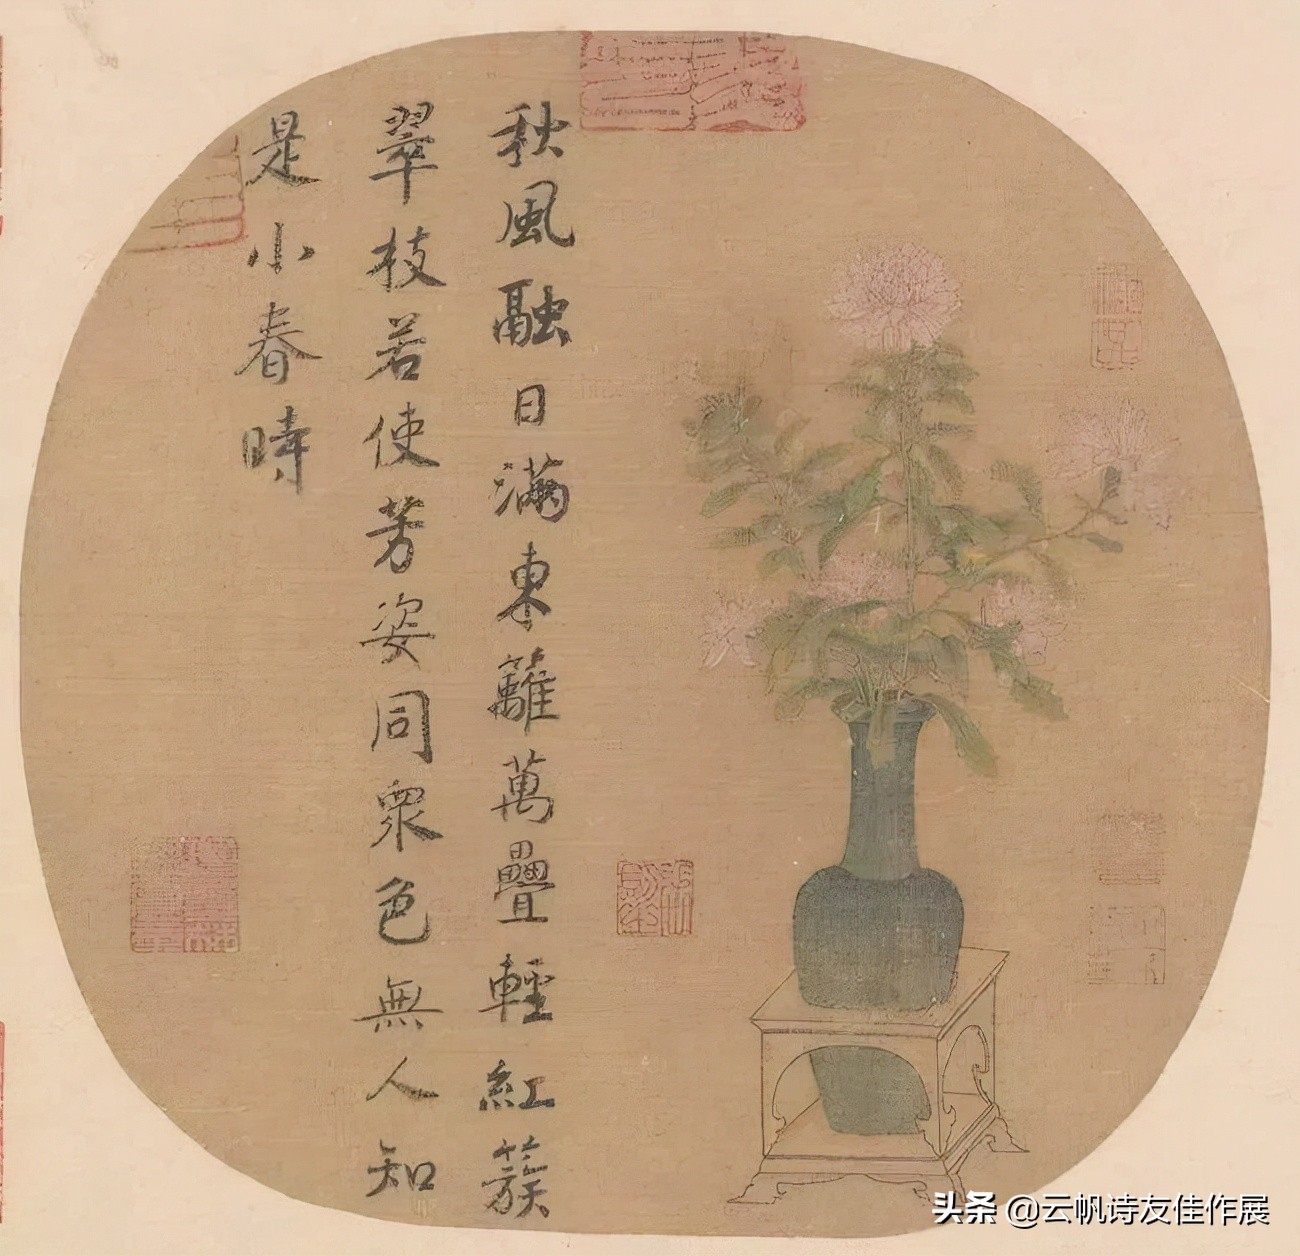 秋風融日滿東籬萬疊輕紅簇
翠枝若使芳姿同衆色無人知
是小春時
头条 @云帆诗友佳作展